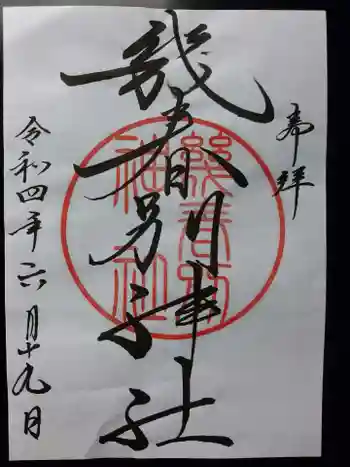 奉拝
幾春別神社
幾春別
神社
令和四年六月十九日